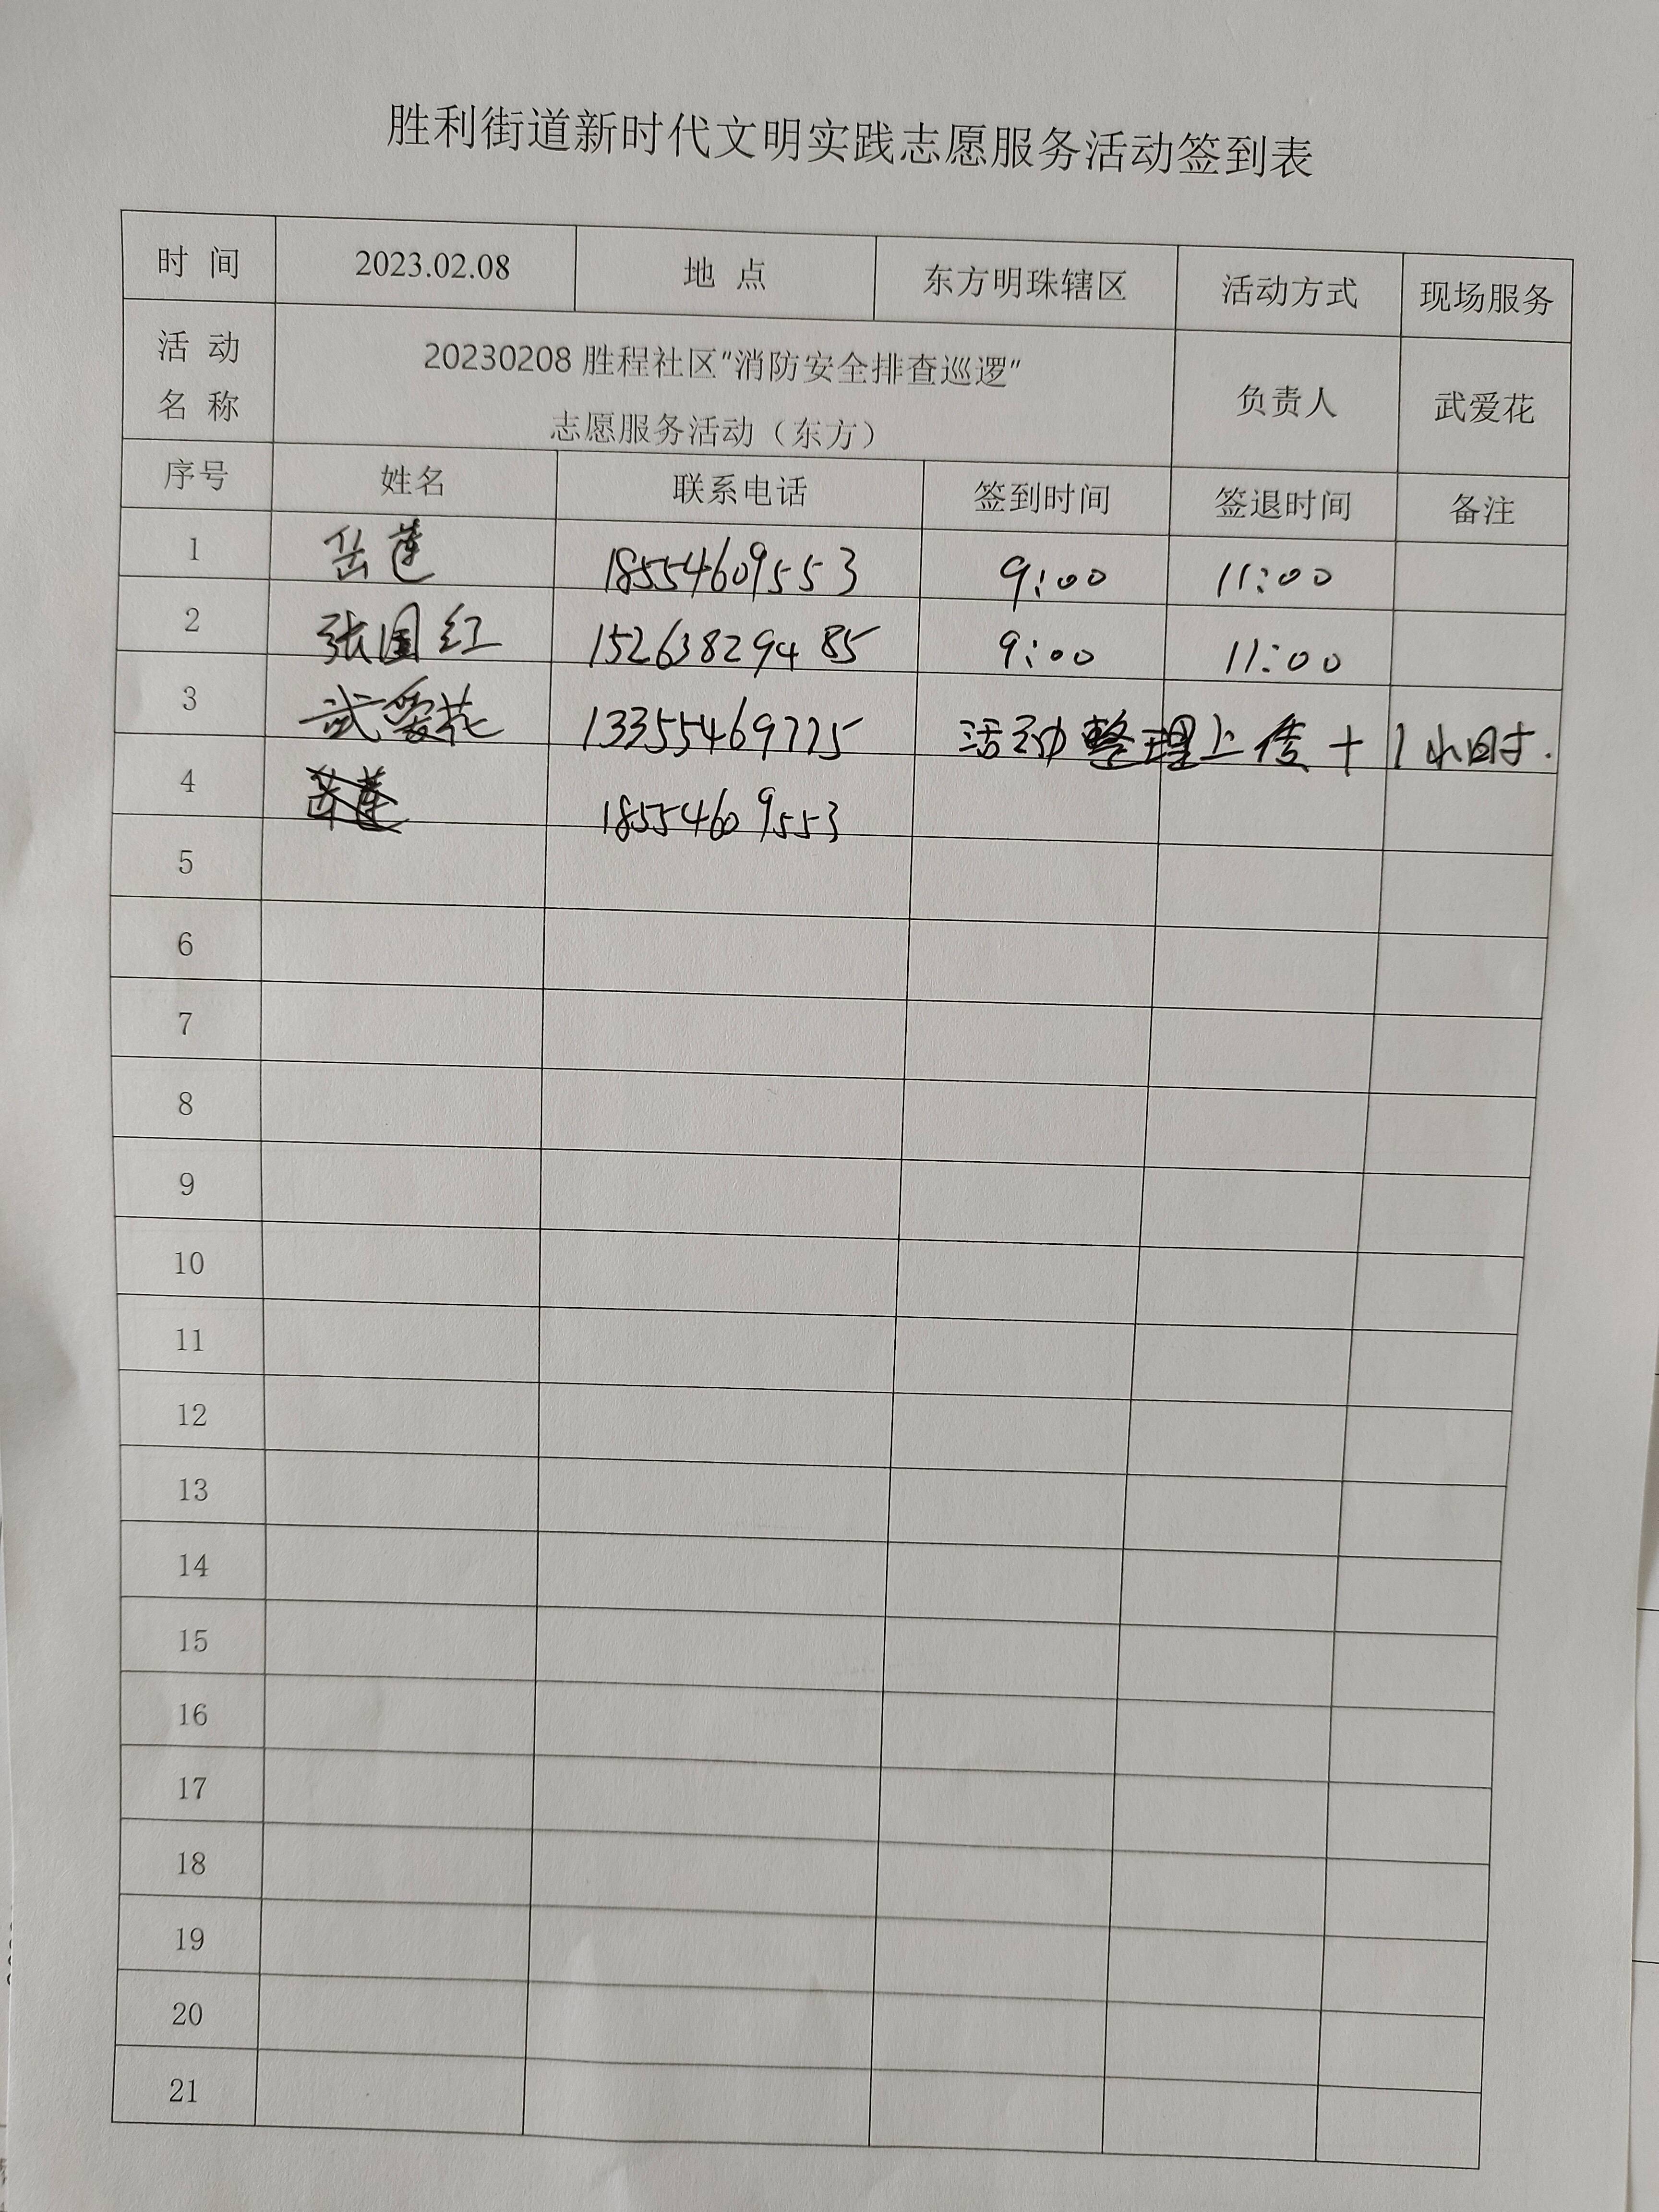 胜利街道新时代文明实践志愿服务活动签到表
时 间 2023.02.08 地 点 东方明珠辖区 活动方式 现场服务
活 动 名 称 20230208 胜程社区"消防安全排查巡逻" 负责人 武爱花
志愿服务活动（东方）
序号 姓名 联系电话 签到时间 签退时间 备注
1 岳莲 18554609553 9:00 11:00
2 张国红 15263829485 9:00 11:00
3 武爱花 13355469775 活动整理上传+1小时.
4 岳莲 18554609553
5
6
7
8
9
10
11
12
13
14
15
16
17
18
19
20
21